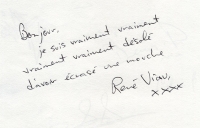 Bonjour,
je suis vraiment vraiment
vraiment vraiment désolé
d'avoir écrasé une mouche
René Viau,
xxxx